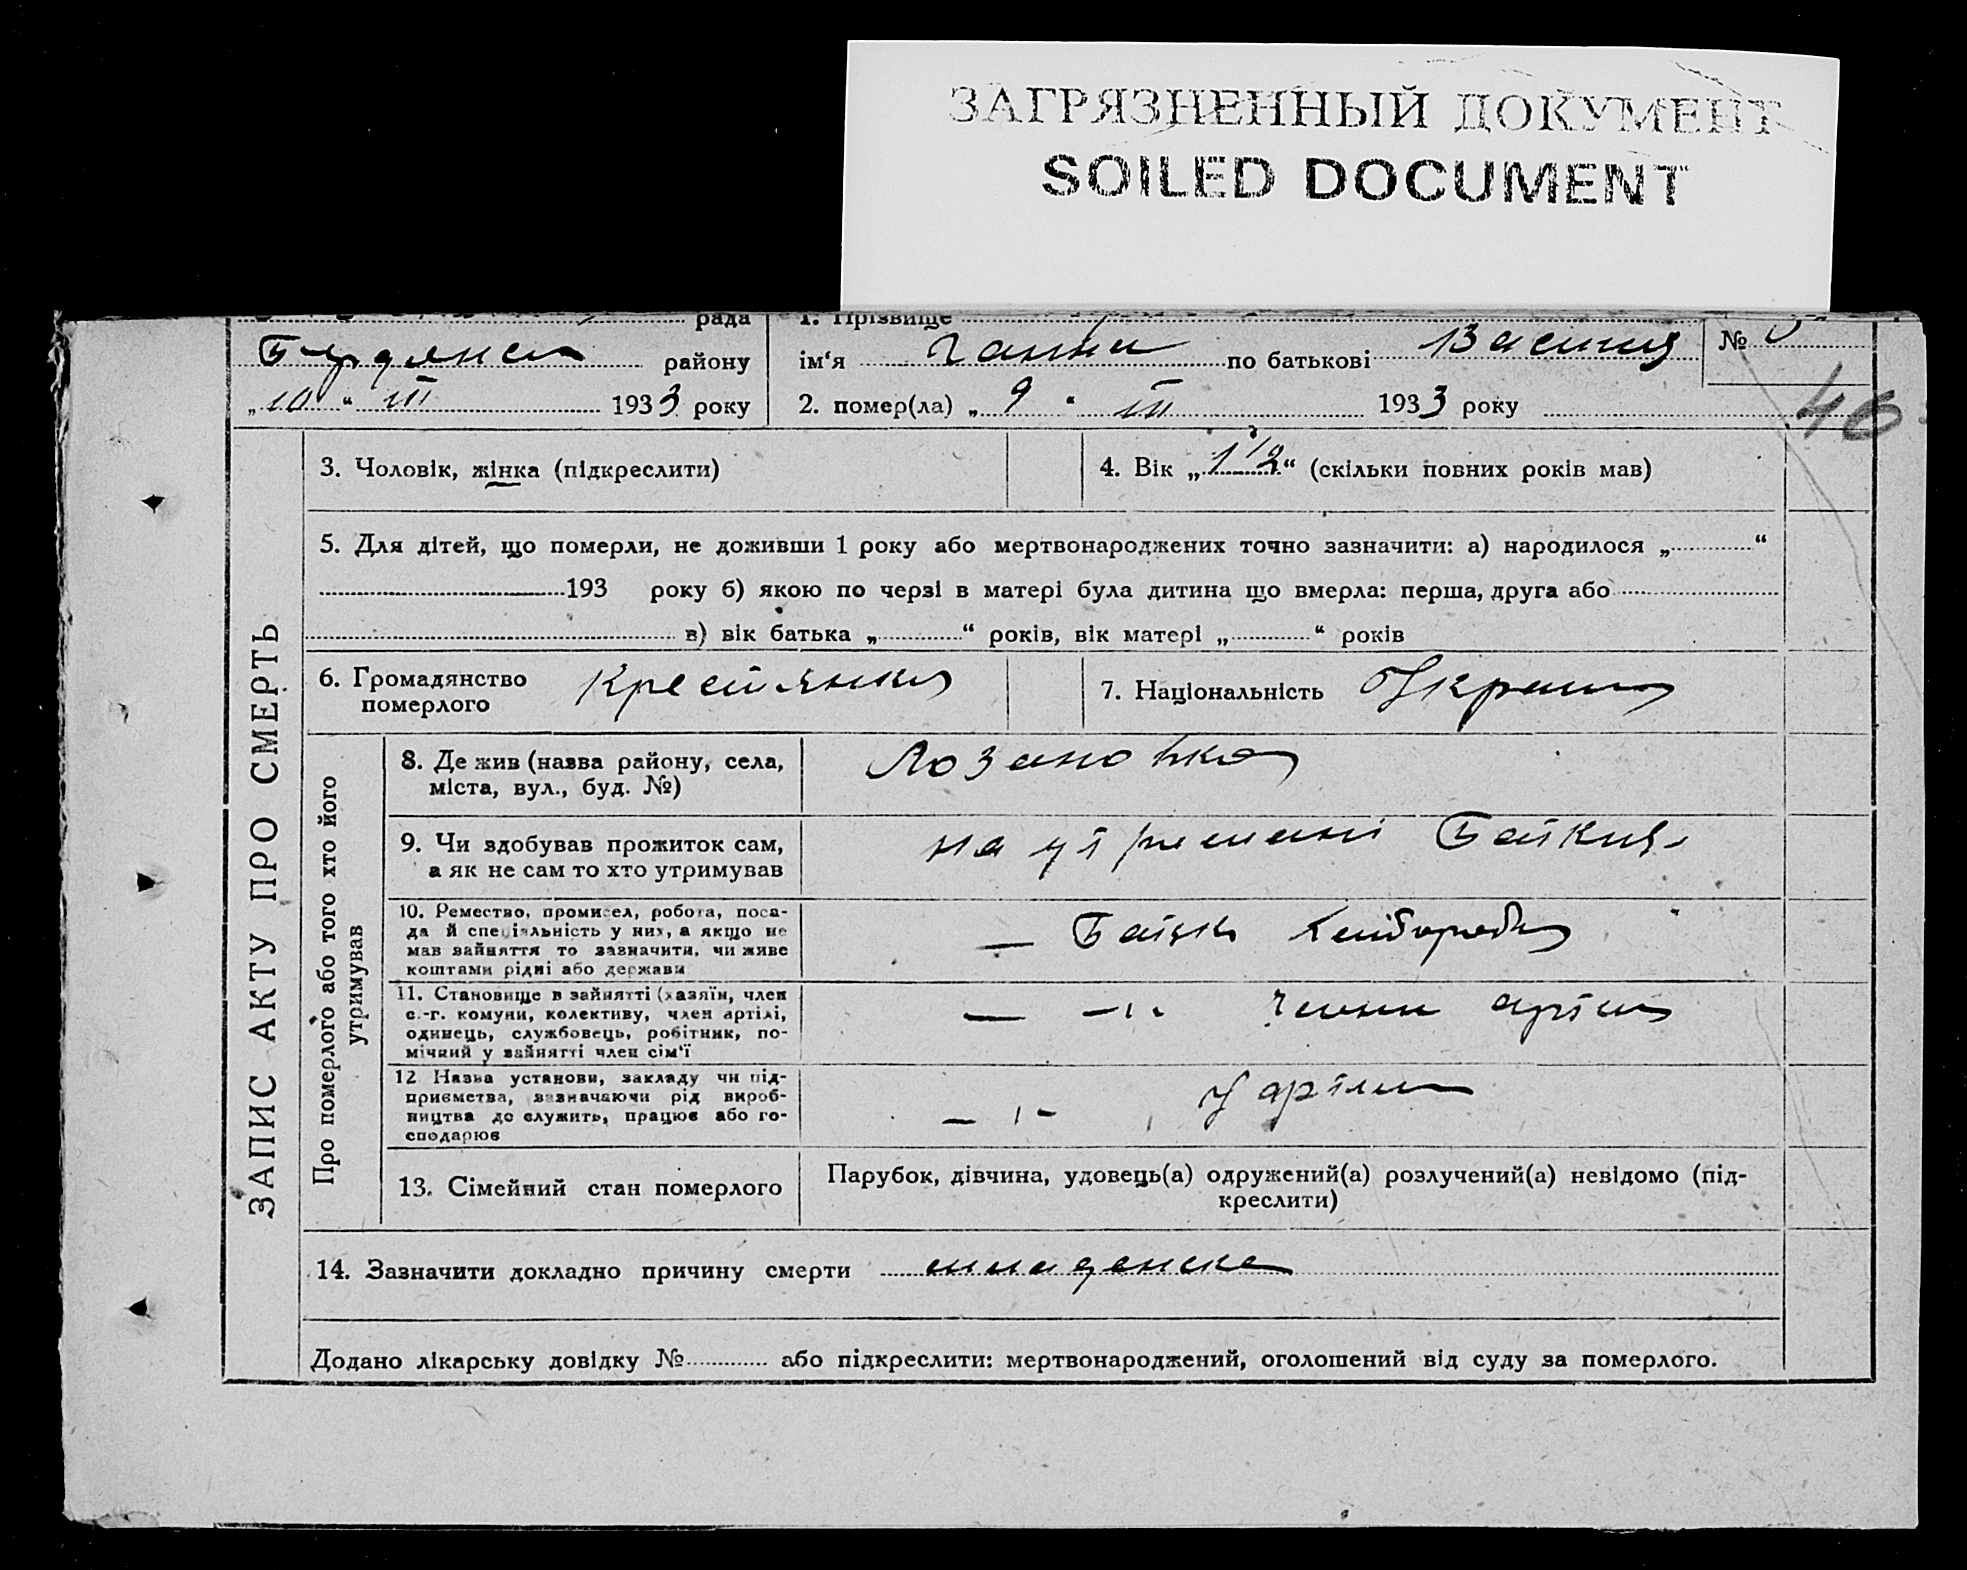 ЗАГРЯЗНЕННЫЙ ДОКУМЕНТ
SOILED DOCUMENT
рада
1. Прізвище
Бердянськ району
ім'я Ганна по батькові Васил №
„10“ III 1933 року
2. помер(ла) „9“ III 1933 року
46
ЗАПИС АКТУ ПРО СМЕРТЬ
3. Чоловік, жінка (підкреслити)
4. Вік „1 1/2“ (скільки повних років мав)
5. Для дітей, що померли, не доживши 1 року або мертвонароджених точно зазначити: а) народилося „ “
193 року б) якою по черзі в матері була дитина що вмерла: перша, друга або
в) вік батька „ “ років, вік матері „ “ років
6. Громадянство
померлого Крестянка
7. Національність Украин
Про померлого або того хто його
утримував
8. Де жив (назва району, села,
міста, вул., буд. №)
Лозановка
9. Чи здобував прожиток сам,
а як не сам то хто утримував
на утримані Батька
10. Ремество, промисел, робота, поса-
да й спеціяльність у них, а якщо не
мав зайняття то зазначити, чи живе
коштами рідні або держави
— Батько хлібороб
11. Становище в зайнятті (хазяїн, член
с.-г. комуни, колективу, член артілі,
одинець, службовець, робітник, по-
мічний у зайнятті член сім'ї
— -"- член артіли
12 Назва установи, закладу чи під-
приємства, зазначаючи рід вироб-
ництва де служить, працює або го-
сподарює
-"- У артіли
13. Сімейний стан померлого
Парубок, дівчина, удовець(а) одружений(а) розлучений(а) невідомо (під-
креслити)
14. Зазначити докладно причину смерти младенска
Додано лікарську довідку № або підкреслити: мертвонароджений, оголошений від суду за померлого.